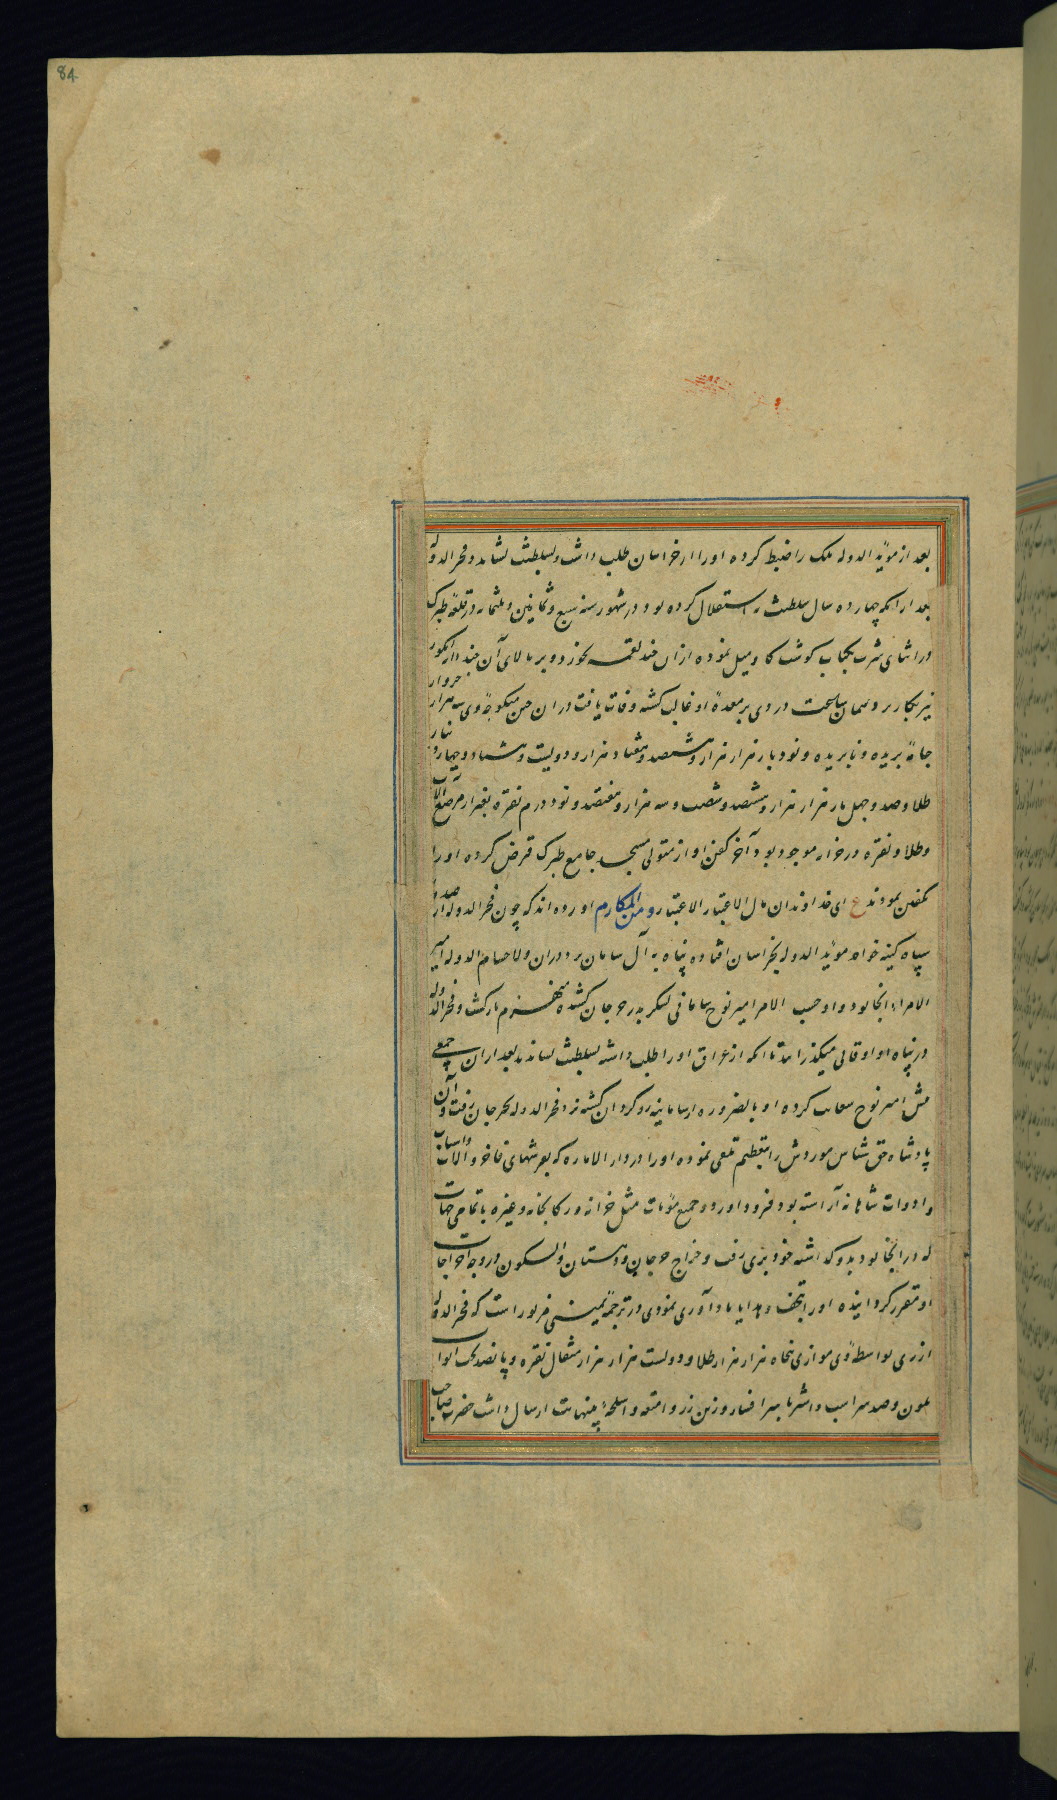 84
بعد از مؤید الدوله ملک را ضبط کرده او را از خراسان طلب داشت و بسلطنت نشاند و فخر الدوله
بعد از آنکه چهارده سال سلطنت به استقلال کرده بود در شهور سنه سبع و ثمانین و ثلثمائه در قلعه طبرک
در اثنای شرب بکباب گوشت گاو میل نموده از آن چند لقمه بخورد و بر بالای آن چند دانه انگور
نیز بکار برد همان ساعت دردی بر معدهٔ او غالب گشته وفات یافت در آن حین سه هزار خروار
جامهٔ بریده و نابریده و نود بار هزار هزار و هشتصد و هفتاد هزار و دویست و هشتاد و چهار دینار
طلا و صد و چهل بار هزار هزار و هشتصد و شصت و سه هزار و هفتصد و نود درم نقره بغیر از مرصع آلات
و طلا و نقره در خزانه موجود بود آخر کفن او از متولی مسجد جامع طبرک قرض کرده او را
تکفین نمودند ع ای خداوندان مال الاعتبار الاعتبار و من المکارم آورده‌اند که چون فخر الدوله از صدمهٔ
سپاه کینه خواه مؤید الدوله بخراسان افتاده پناه به آل سامان برد در آن ولا حسام الدوله امیر
الامراء آنجا بود و او حسب الامر امیر نوح سامانی لشکر به جرجان کشیده منهزم بازگشت و فخر الدوله
در پناه او اوقاتی میگذرانید تا آنکه از عراق او را طلب داشته بسلطنت نشاندند بعد از آن جمعی
پیش امیر نوح سعایت کرده او بالضروره از سامانیه روگردان گشته نزد فخر الدوله بجرجان رفت و آن
پادشاه حق شناس موروش را بتعظیم تلقی نموده او را در دار الاماره که بفرشهای فاخر و آلات و اسباب
و ادوات شاهانه آراسته بود فرود آورد و جمیع مؤنات مثل خزانه و رکابخانه و غیره با تمامی جهات
که در آنجا بود بدو گذاشته خود بری رفت و خراج جرجان و دهستان و آبسکون در وجه اخراجات
او مقرر گردانیده او را بتحف و هدایا یادآوری نمودی در ترجمهٔ یمینی مزبور است که فخر الدوله
از ری بواسطهٔ وی موازی پنجاه هزار هزار طلا و دویست هزار هزار مثقال نقره و پانصد تخت ابواب
ملون و صد سر اسب و استر با سرافسار و زین زر و امتعه و اسلحهٔ بینهایت ارسال داشت حضرت صاحب